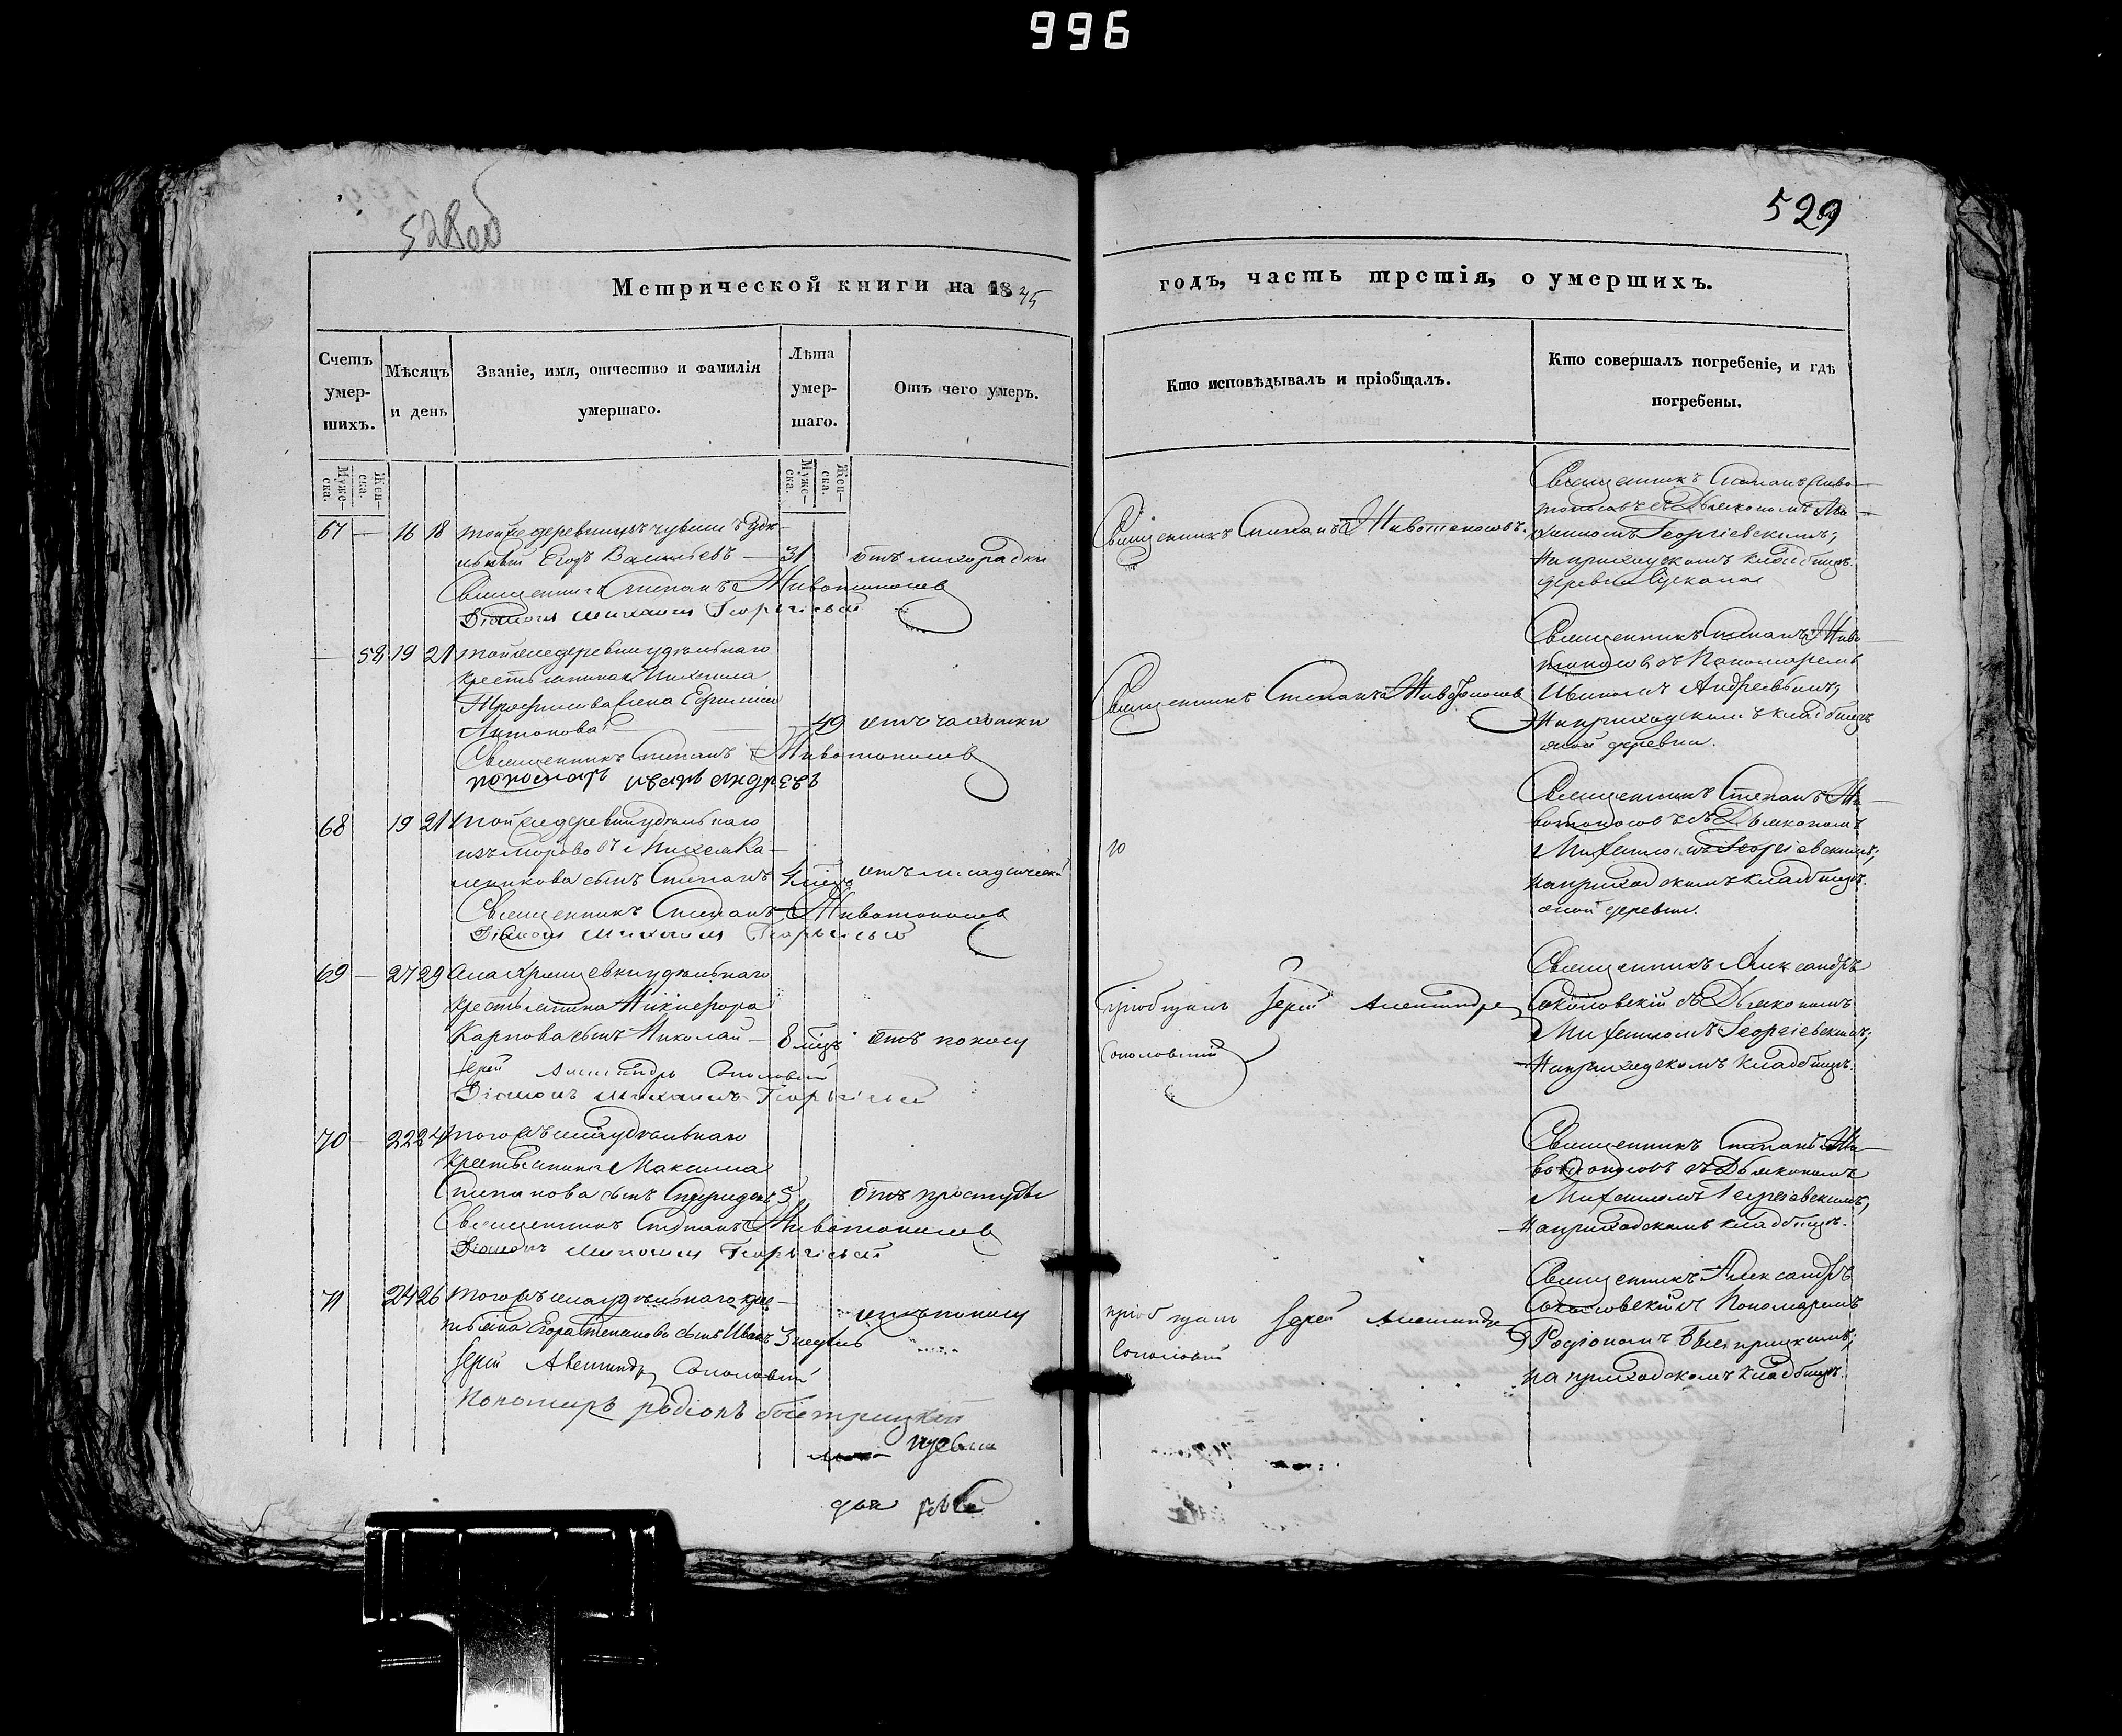 996
528об
529
Метрической книги на 1845
годъ, часть третія, о умершихъ.
Счетъ умер-шихъ.
Мѣсяцъ и день
Званіе, имя, отчество и фамилія умершаго.
Лѣта умер-шаго.
Отъ чего умеръ.
Кто исповѣдывалъ и пріобщалъ.
Кто совершалъ погребеніе, и гдѣ погребены.
Муже-ска.
Жен-ска.
Муже-ска.
Жен-ска.
67 — 16 18 тойже деревни изъ чувашъ
Егоръ Васильевъ — 31 отъ лихорадки
Священникъ Степанъ Животоносовъ
Діаконъ Михаилъ Георгіевскій
Священникъ Степанъ Животоносовъ.
Священникъ Степанъ Живо-
тоносовъ съ Дьякономъ Ми-
хаиломъ Георгіевскимъ;
На приходскомъ кладбищѣ
деревни
— 58 19 21 тойже деревни удѣльнаго
крестьянина Михаила
жена
Антонова — 49 отъ чахотки
Священникъ Степанъ Животоносовъ
пономарь иванъ андреевъ
Священникъ Степанъ Животоносовъ
Священникъ Степанъ Живо-
тоносовъ съ Пономаремъ
Иваномъ Андреевымъ;
На приходскомъ кладбищѣ
оной деревни.
68 19 21 той же деревни удѣльнаго
сынъ Степанъ 4 мѣсц
Священникъ Степанъ Животоносовъ
Діаконъ Михаилъ Георгіевскій
Священникъ Степанъ Жи-
вотоносовъ съ Дьякономъ
Михаиломъ Георгіевскимъ;
на приходскомъ кладбищѣ
оной деревни.
69 — 27 29 удѣльнаго
крестьянина Никифора
Карпова сынъ Николай — 8 мѣцъ отъ поносу
Іерей Александръ Соколовскій
Діаконъ Михаилъ Георгіевскій
пріобщалъ Іерей Александръ
Соколовскій
Священникъ Александръ
Соколовскій съ Дьякономъ
Михаиломъ Георгіевскимъ;
На приходскомъ кладбищѣ.
70 — 22 24 тогожъ села удѣльнаго
крестьянина Максима
Степанова сынъ Спиридонъ 5 отъ простуды
Священникъ Степанъ Животоносовъ
Діаконъ Михаилъ Георгіевскій
Священникъ Степанъ Жи-
вотоносовъ съ Дьякономъ
Михаиломъ Георгіевскимъ;
На приходскомъ кладбищѣ.
71 24 26 тогожъ села удѣльнаго кре-
стьянина Егора Степанова сынъ Иванъ 3 недѣль отъ поносу
Іерей Александръ Соколовскій
Пономарь родіонъ быстрицкій
пріобщалъ Іерей Александръ
Соколовскій
Священникъ Александръ
Соколовскій съ Пономаремъ
Родіономъ Быстрицкимъ;
на приходскомъ кладбищѣ.